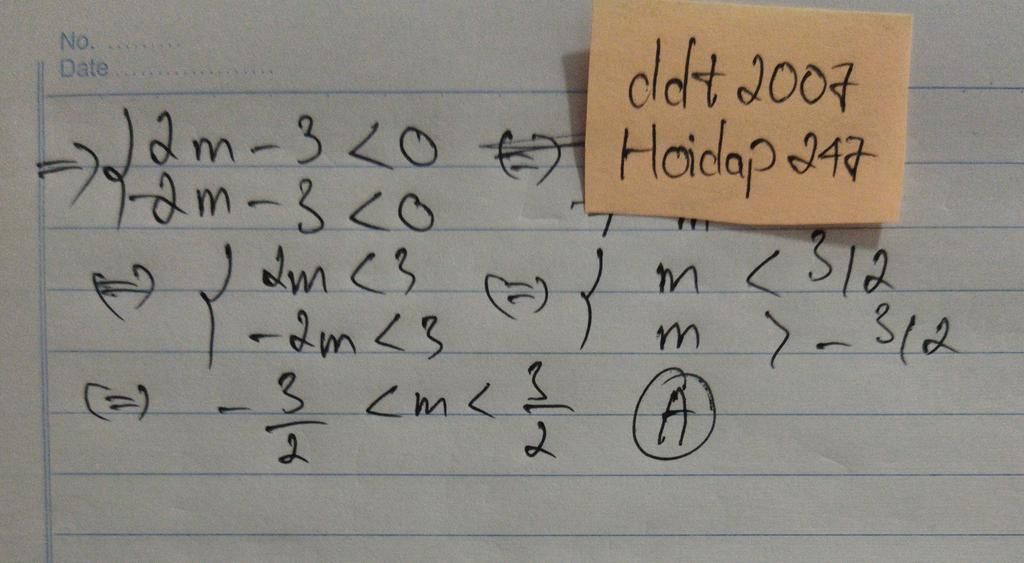 No. ..........
Date ....................
ddt 2007
Hoidap 247
=> { 2m - 3 < 0 <=>
-2m - 3 < 0
<=> { 2m < 3 <=> { m < 3/2
-2m < 3 m > - 3/2
<=> - 3/2 < m < 3/2 (A)